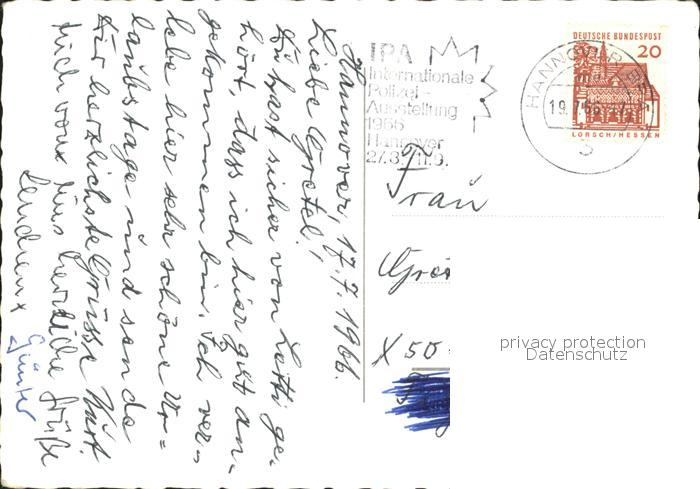 Hannover, 17.7.1966.
Liebe Gretel!
Du hast sicher von Lotti ge-
hört, dass ich hier gut an-
gekommen bin. Ich ver-
lebe hier sehr schöne Ur=
laubstage und sende
Dir herzlichste Grüsse Kurt
Auch von uns herzliche Grüße
Günter
IPA
Internationale
Polizei-
Ausstellung
1966
Hannover
27.8.-11.9.
HANNOVER
19.7.66
3
DEUTSCHE BUNDESPOST
20
LORSCH/HESSEN
Frau
X 50
privacy protection
Datenschutz